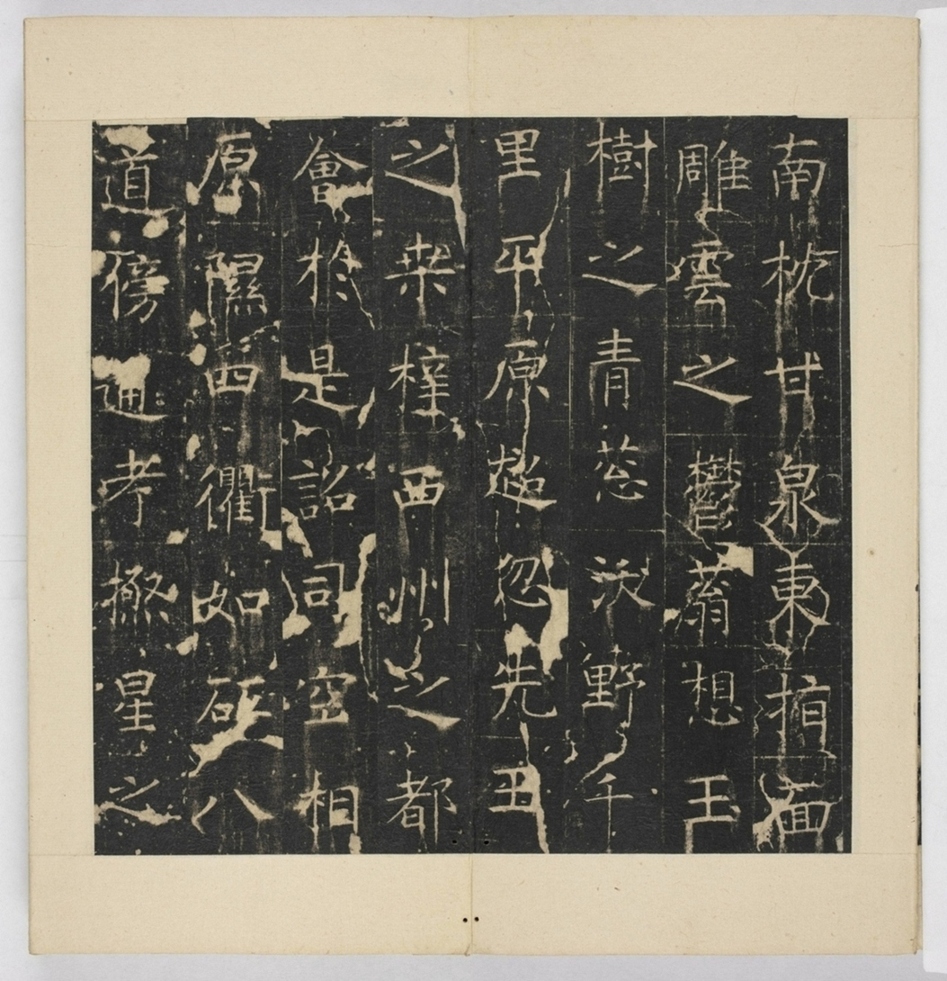 南枕甘泉東
雕雲之欝蓊想玉
樹之青葱沃野千
里平原超忽先王
之桑梓西州之都
會於是詔司空相
原隰四衢如砥八
道傍通考極星之